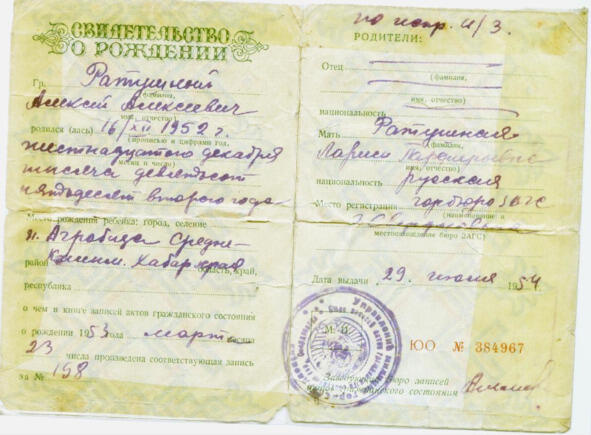 СВИДЕТЕЛЬСТВО
О РОЖДЕНИИ
Гр. Ратушный
(фамилия,
Алексей Алексеевич
имя, отчество)
родился (лась) 16/XII 1952 г.
(прописью и цифрами год,
шестнадцатого декабря
месяц и число)
тысяча девятьсот
пятьдесят второго года
Место рождения ребенка: город, селение
п. Агробаза Средне-
район Хабар края область, край,
республика
о чем в книге записей актов гражданского состояния
о рождении 1953 года март месяца
23 числа произведена соответствующая запись
за № 198
по испр. и/з.
РОДИТЕЛИ:
Отец
(фамилия,
имя, отчество)
национальность
Мать Ратушная
(фамилия,
Лариса
имя, отчество)
национальность русская
Место регистрации горбюро ЗАГС
(наименование и
местонахождение бюро ЗАГС)
Дата выдачи 29 июля 1954
М. П.
ЮО № 384967
бюро записей
гражданского состояния